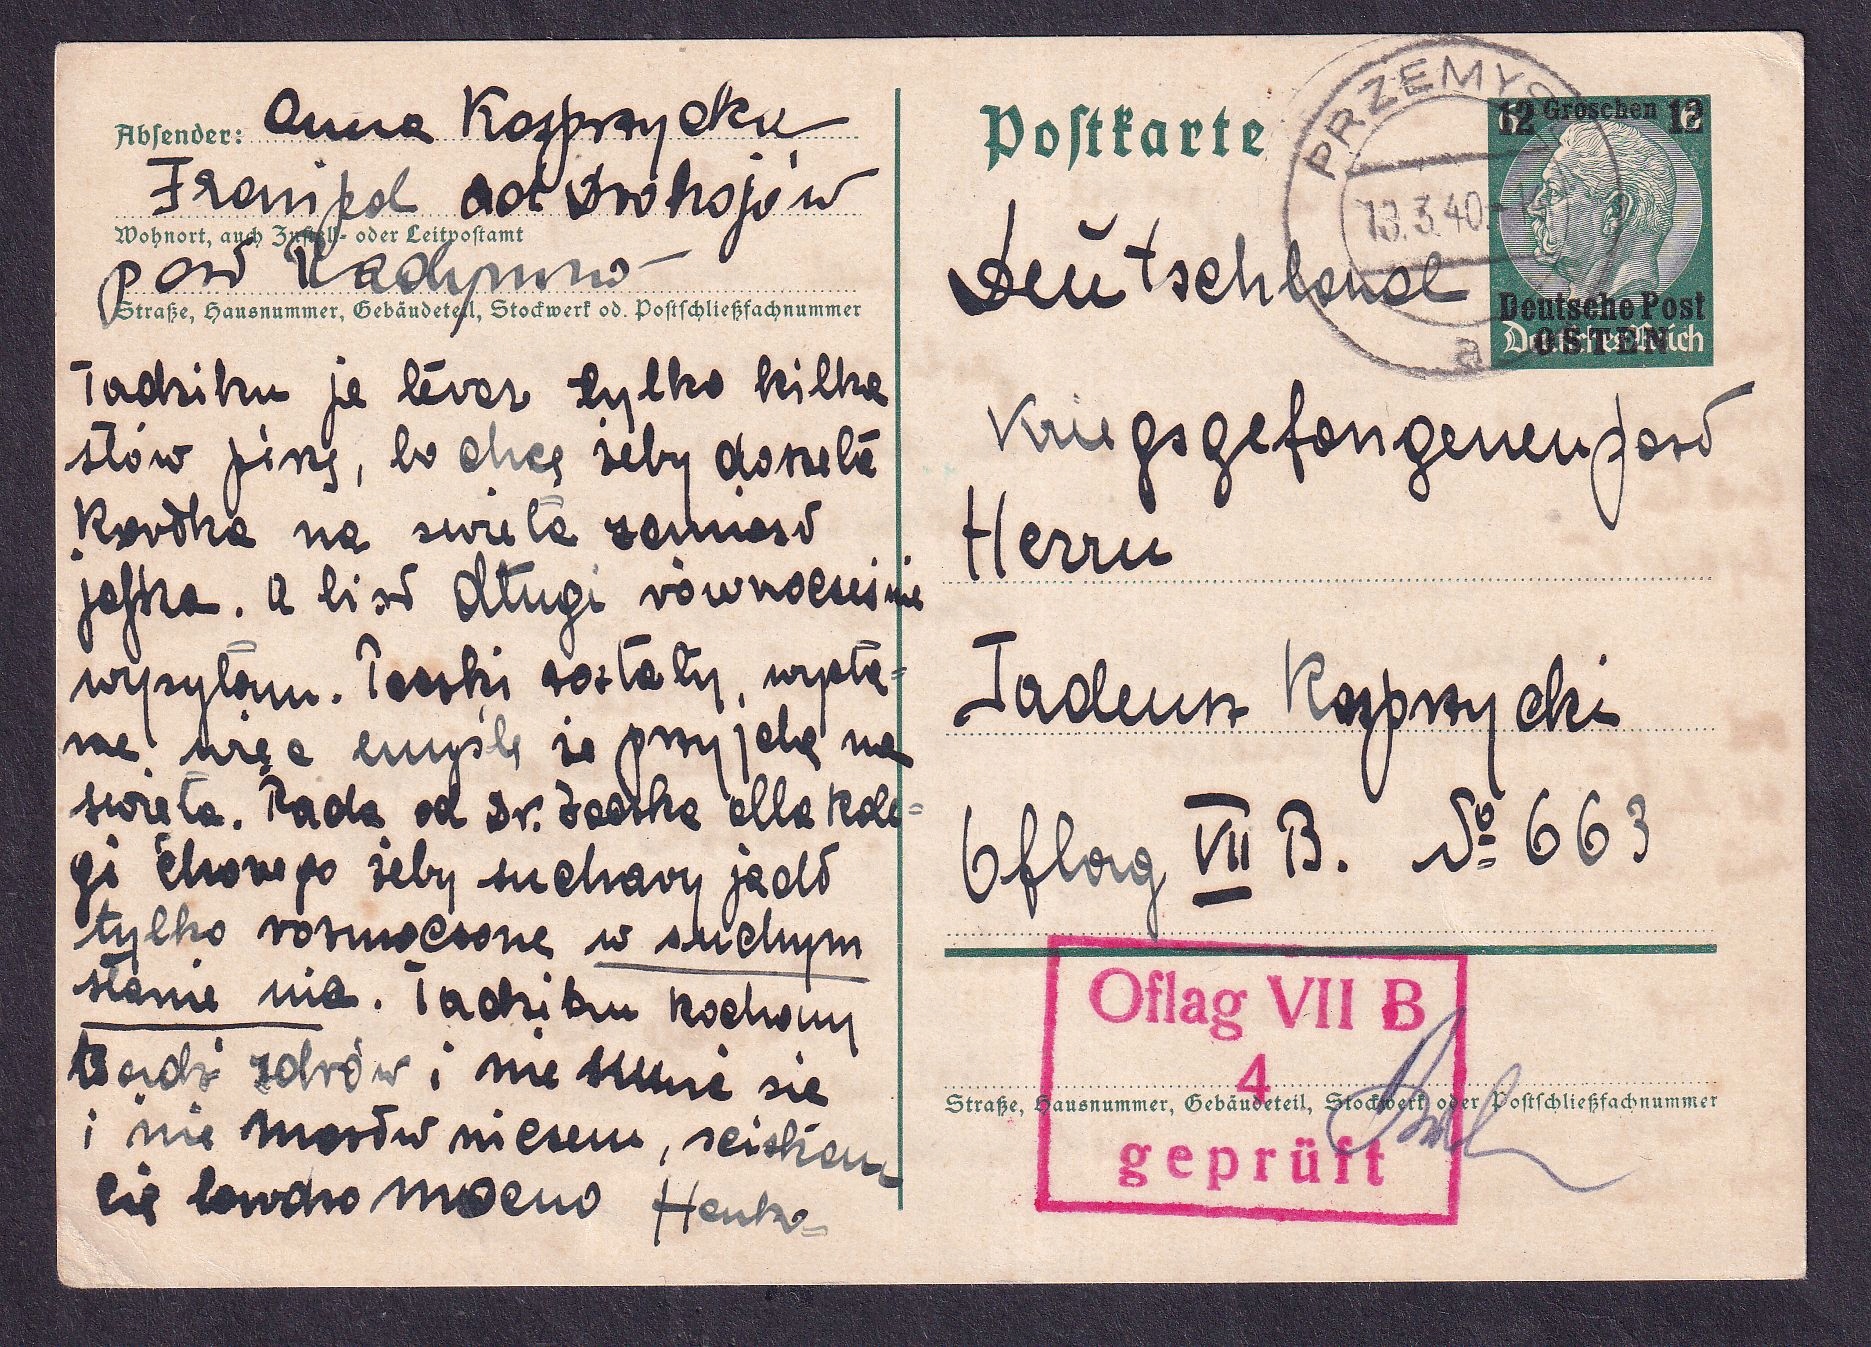 Absender: Anna Kasprzycka
Franipol ad Drohojów
Wohnort, auch Zustell- oder Leitpostamt
pow Radymno
Straße, Hausnummer, Gebäudeteil, Stockwerk od. Postschließfachnummer
Tadziku ja teraz tylko kilka
słów piszę, bo chcę żeby doszeła
Kartka na swięta zamiast
jajka. A list długi równocześnie
wysyłam. Paczki zostały, wysła-
ne więc emyślę że przyjdą na
swięta. Rada od Dr. dla Kole-
gi Chorego żeby suchary jadł
tylko rozmoczone w suchym
stanie nie. Tadziku Kochany
Bądź zdrów i nie smuć się
i nie martw niczem, sciskam
cię bardzo mocno Henka
Postkarte
PRZEMYSL
13.3.40
a
12 Groschen 12
6
Deutsche Post
OSTEN
Deutsches Reich
Deutschland
Kriegsgefangenenpost
Herrn
Tadeusz Kasprzycki
Oflag VII B. No 663
Oflag VII B
4
Straße, Hausnummer, Gebäudeteil, Stockwerk oder Postschließfachnummer
geprüft